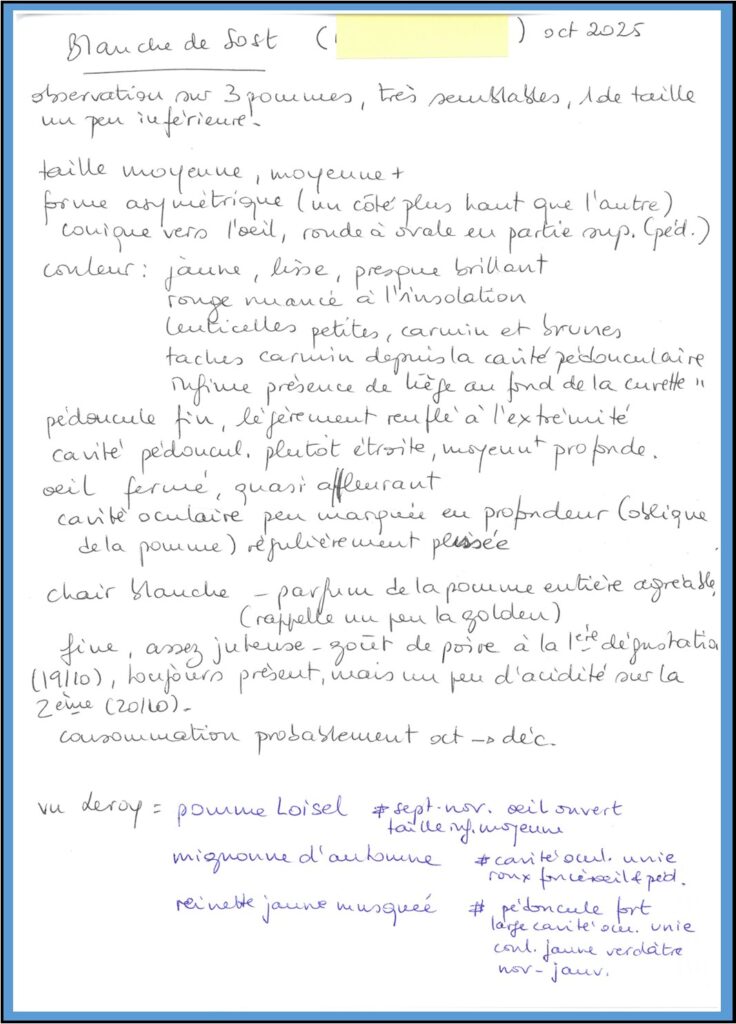 Blanche de Sost ( ) oct 2025
observation sur 3 pommes, très semblables, 1 de taille
un peu inférieure.
taille moyenne, moyenne +
forme asymétrique (un côté plus haut que l'autre)
conique vers l'oeil, ronde à ovale en partie sup. (péd.)
couleur : jaune, lisse, presque brillant
rouge nuancé à l'insolation
lenticelles petites, carmin et brunes
taches carmin depuis la cavité pédonculaire
infime présence de liège au fond de la cuvette "
pédoncule fin, légèrement renflé à l'extrémité
cavité pédoncul. plutôt étroite, moyennt profonde.
oeil fermé, quasi affleurant
cavité oculaire peu marquée en profondeur (oblique
de la pomme) régulièrement plissée
chair blanche - parfum de la pomme entière agréable,
(rappelle un peu la golden)
fine, assez juteuse - goût de poire à la 1ère dégustation
(19/10), toujours présent, mais un peu d'acidité sur la
2ème (20/10).
consommation probablement oct → déc.
vu Leroy = pomme Loisel ≠ sept-nov. oeil ouvert
taille inf. moyenne
mignonne d'automne ≠ cavité ocul. unie
roux foncé oeil & péd.
reinette jaune musquée ≠ pédoncule fort
large cavité ocu. unie
coul. jaune verdâtre
nov - janv.